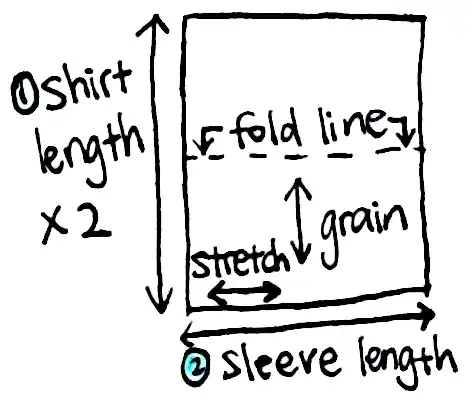 ① shirt
length
x 2
fold line
grain
stretch
② sleeve length